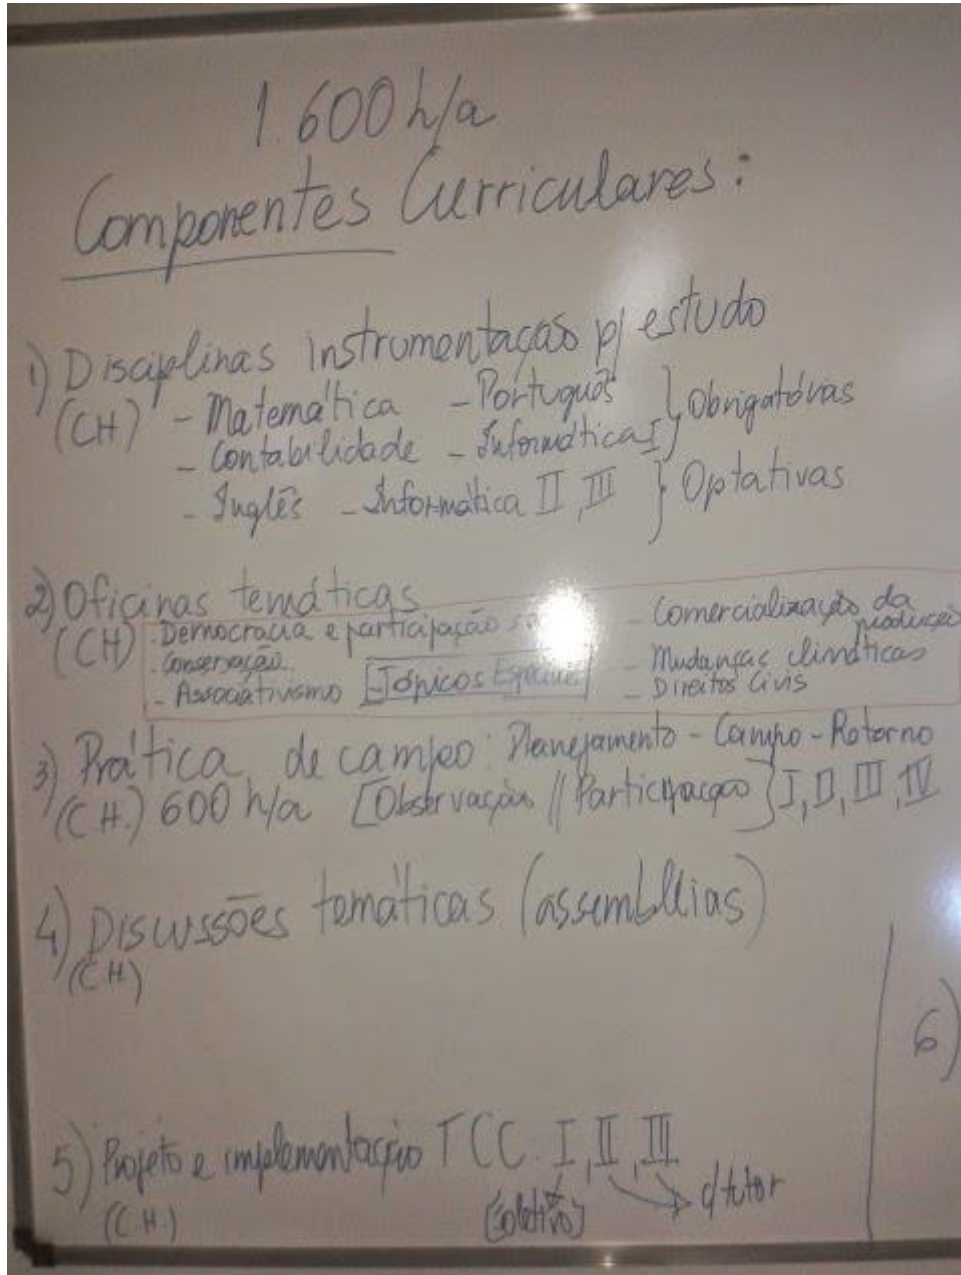 1.600 h/a
Componentes Curriculares:
1) Disciplinas instrumentação p/ estudo
(CH) - Matemática - Português } Obrigatórias
- Contabilidade - Informática I
- Inglês - Informática II, III } Optativas
2) Oficinas temáticas
(CH) - Democracia e participação - Comercialização da produção
- Conservação... - Mudanças climáticas
- Associativismo - Tópicos Especiais - Direitos Civis
3) Prática de campo: Planejamento - Campo - Retorno
(C.H.) 600 h/a [Observação // Participação] I, II, III, IV
4) Discussões temáticas (assembléias)
(CH)
6)
5) Projeto e implementação TCC. I, II, III
(C.H.) [Coletivo] c/ tutor